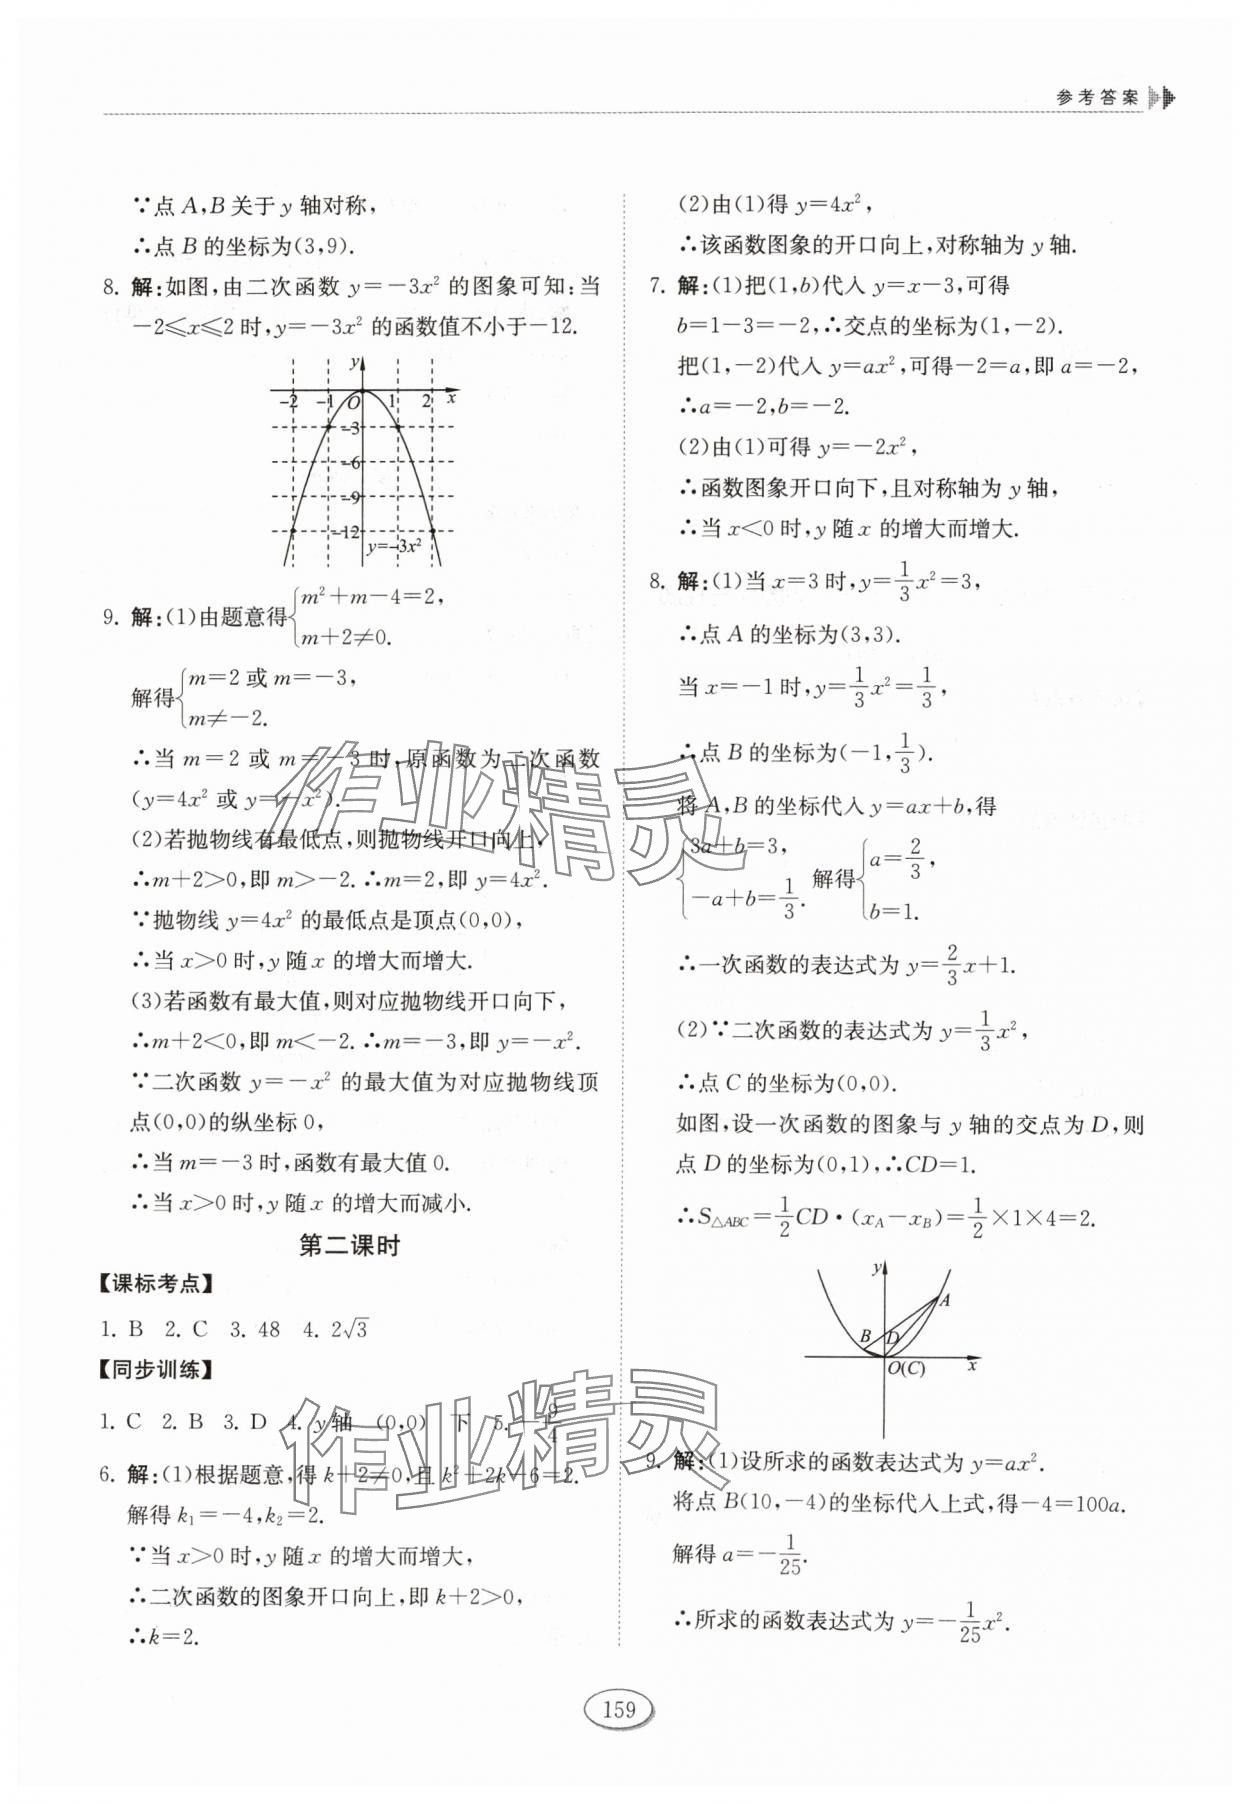 参考答案
∵点 A,B 关于 y 轴对称,
∴点 B 的坐标为(3,9).
8. 解:如图,由二次函数 y=-3x² 的图象可知:当
-2≤x≤2 时,y=-3x² 的函数值不小于-12.
y
-2 -1 O 1 2 x
-3
-6
-9
-12
y=-3x²
9. 解:(1)由题意得{m²+m-4=2,
m+2≠0.
解得{m=2 或 m=-3,
m≠-2.
∴当 m=2 或 m=-3 时,原函数为二次函数
(y=4x² 或 y=-x²).
(2)若抛物线有最低点,则抛物线开口向上,
∴m+2>0,即 m>-2.∴m=2,即 y=4x².
∵抛物线 y=4x² 的最低点是顶点(0,0),
∴当 x>0 时,y 随 x 的增大而增大.
(3)若函数有最大值,则对应抛物线开口向下,
∴m+2<0,即 m<-2.∴m=-3,即 y=-x².
∵二次函数 y=-x² 的最大值为对应抛物线顶
点(0,0)的纵坐标 0,
∴当 m=-3 时,函数有最大值 0.
∴当 x>0 时,y 随 x 的增大而减小.
第二课时
【课标考点】
1. B 2. C 3. 48 4. 2√3
【同步训练】
1. C 2. B 3. D 4. y 轴 (0,0) 下 5. -9/4
6. 解:(1)根据题意,得 k+2≠0,且 k²+2k-6=2.
解得 k₁=-4,k₂=2.
∵当 x>0 时,y 随 x 的增大而增大,
∴二次函数的图象开口向上,即 k+2>0,
∴k=2.
(2)由(1)得 y=4x²,
∴该函数图象的开口向上,对称轴为 y 轴.
7. 解:(1)把(1,b)代入 y=x-3,可得
b=1-3=-2,∴交点的坐标为(1,-2).
把(1,-2)代入 y=ax²,可得-2=a,即 a=-2,
∴a=-2,b=-2.
(2)由(1)可得 y=-2x²,
∴函数图象开口向下,且对称轴为 y 轴,
∴当 x<0 时,y 随 x 的增大而增大.
8. 解:(1)当 x=3 时,y=1/3x²=3,
∴点 A 的坐标为(3,3).
当 x=-1 时,y=1/3x²=1/3,
∴点 B 的坐标为(-1,1/3).
将 A,B 的坐标代入 y=ax+b,得
{3a+b=3, -a+b=1/3. 解得{a=2/3, b=1.
∴一次函数的表达式为 y=2/3x+1.
(2)∵二次函数的表达式为 y=1/3x²,
∴点 C 的坐标为(0,0).
如图,设一次函数的图象与 y 轴的交点为 D,则
点 D 的坐标为(0,1),∴CD=1.
∴S△ABC=1/2CD·(xA-xB)=1/2×1×4=2.
y
A
B D
O(C) x
9. 解:(1)设所求的函数表达式为 y=ax².
将点 B(10,-4)的坐标代入上式,得-4=100a.
解得 a=-1/25.
∴所求的函数表达式为 y=-1/25x².
159
作业精灵
作业精灵